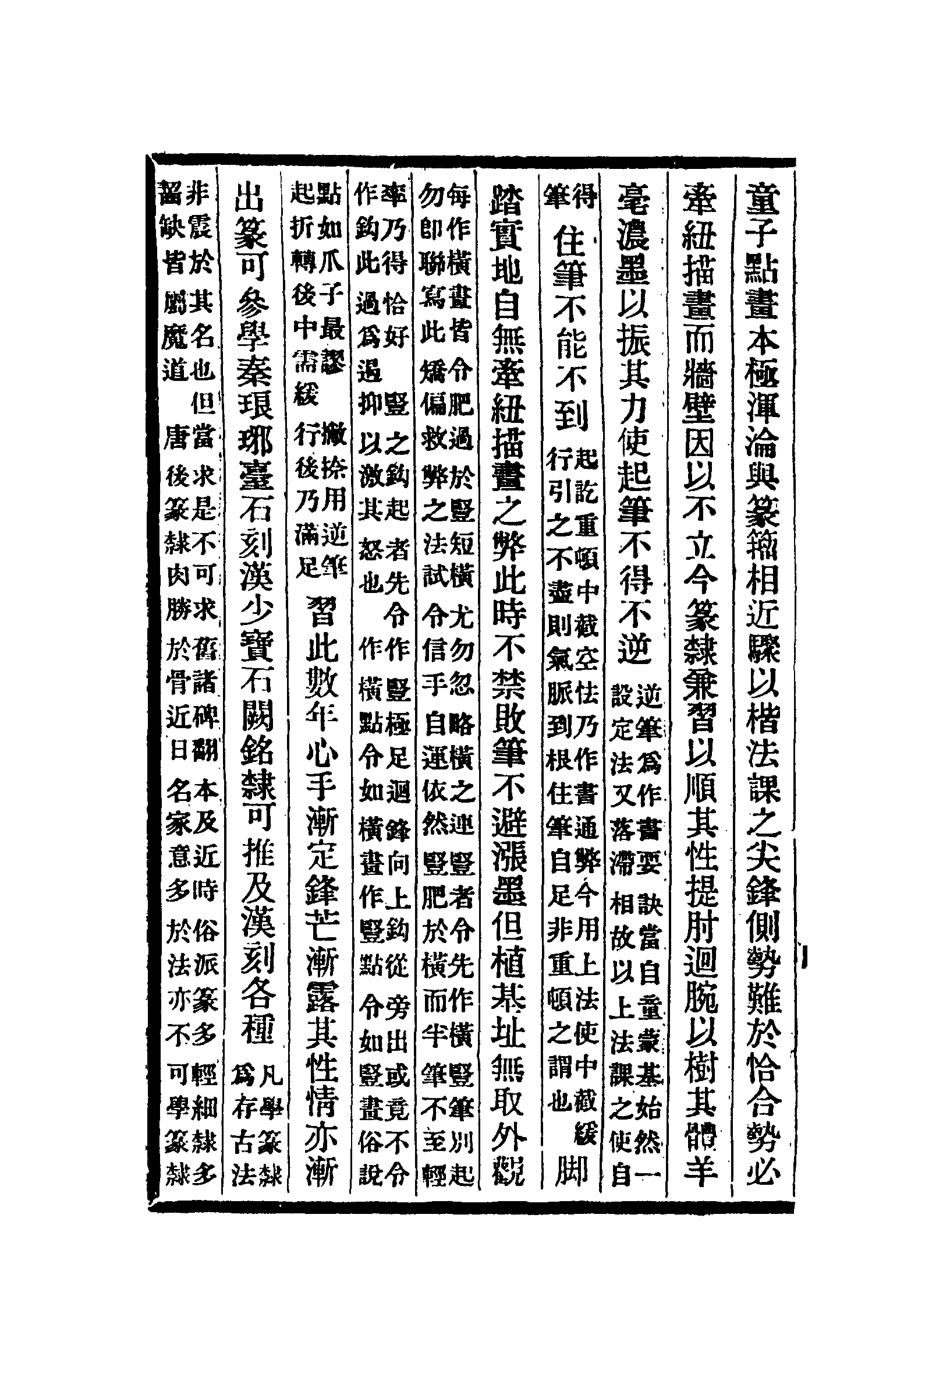 童子點畫本極渾淪與篆籀相近驟以楷法課之尖鋒側勢難於恰合勢必
牽紐描畫而牆壁因以不立今篆隸兼習以順其性提肘迴腕以樹其體羊
毫濃墨以振其力使起筆不得不逆
逆筆爲作書要訣當自童蒙基始然一
設定法又落滯相故以上法課之使自
得
筆
住筆不能不到
起訖重頓中截空怯乃作書通弊今用上法使中截緩
行引之不盡則氣脈到根住筆自足非重頓之謂也
脚
踏實地自無牽紐描畫之弊此時不禁敗筆不避漲墨但植基址無取外觀
每作橫畫皆令肥過於豎短橫尤勿忽略橫之連豎者令先作橫豎筆別起
勿卽聯寫此矯偏救弊之法試令信手自運依然豎肥於橫而半筆不至輕
率乃得恰好豎之鈎起者先令作豎極足迴鋒向上鈎從旁出或竟不令
作鈎此過爲遏抑以激其怒也作橫點令如橫畫作豎點令如豎畫俗說
點如瓜子最謬撇捺用逆筆
起折轉後中需緩行後乃滿足
習此數年心手漸定鋒芒漸露其性情亦漸
出篆可參學秦琅琊臺石刻漢少寶石闕銘隸可推及漢刻各種
凡學篆隸
爲存古法
非震於其名也但當求是不可求舊諸碑翻本及近時俗派篆多輕細隸多
缺皆屬魔道唐後篆隸肉勝於骨近日名家意多於法亦不可學篆隸